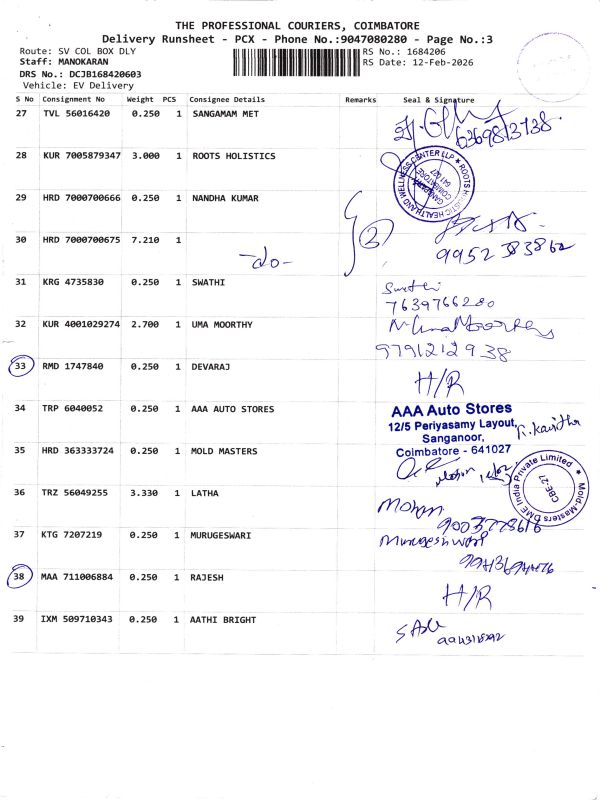 THE PROFESSIONAL COURIERS, COIMBATORE
Delivery Runsheet - PCX - Phone No.:9047080280 - Page No.:3
Route: SV COL BOX DLY
RS No.: 1684206
Staff: MANOKARAN
RS Date: 12-Feb-2026
DRS No.: DCJB168420603
Vehicle: EV Delivery
S No Consignment No Weight PCS Consignee Details Remarks Seal & Signature
27 TVL 56016420 0.250 1 SANGAMAM MET
6369813738
28 KUR 7005879347 3.000 1 ROOTS HOLISTICS
ROOTS HOLISTIC HEALTH AND WELLNESS CENTER LLP
GANAPATHY
COIMBATORE
641 027
29 HRD 7000700666 0.250 1 NANDHA KUMAR
2
30 HRD 7000700675 7.210 1
-do-
31 KRG 4735830 0.250 1 SWATHI
Swathi
7639766280
32 KUR 4001029274 2.700 1 UMA MOORTHY
N. Uma Moorthy
9791212938
33 RMD 1747840 0.250 1 DEVARAJ
H/R
34 TRP 6040052 0.250 1 AAA AUTO STORES
AAA Auto Stores
12/5 Periyasamy Layout,
Sanganoor,
Coimbatore - 641027
R. Kavitha
35 HRD 363333724 0.250 1 MOLD MASTERS
Mold-Masters DME India Private Limited
CBE-27
36 TRZ 56049255 3.330 1 LATHA
Mohan
9003778616
37 KTG 7207219 0.250 1 MURUGESWARI
Murugeshwari
38 MAA 711006884 0.250 1 RAJESH
H/R
39 IXM 509710343 0.250 1 AATHI BRIGHT